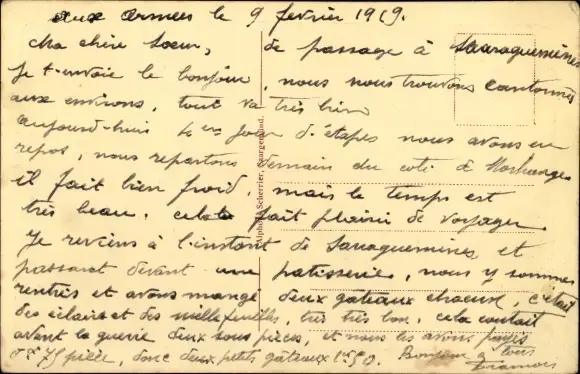 aux armées le 9 février 1919.
Ma chère Soeur, de passage à Sarraguemines
Je t'envoie le bonjour, nous nous trouvons cantonnés
aux environs, tout va très bien
aujourd-huis 4em jour d'étapes nous avons eu
repos, nous repartons demain du coté d
il fait bien froid, mais le temps est
très beau, cela fait plaisir de voyager
Je reviens à l'instant de Sarraguemines et
passant devant une patisserie, nous y sommes
rentrés et avons mangé deux gateaux chacun, c'était
des éclairs et des millefeuilles, très très bon, cela coutait
avant la guerre deux sous pièces, et nous les avons payés
0f 75 pièce, donc deux petits gateaux 1f50. Bonjour à tous
Alphons Scherrier, Saargemünd.